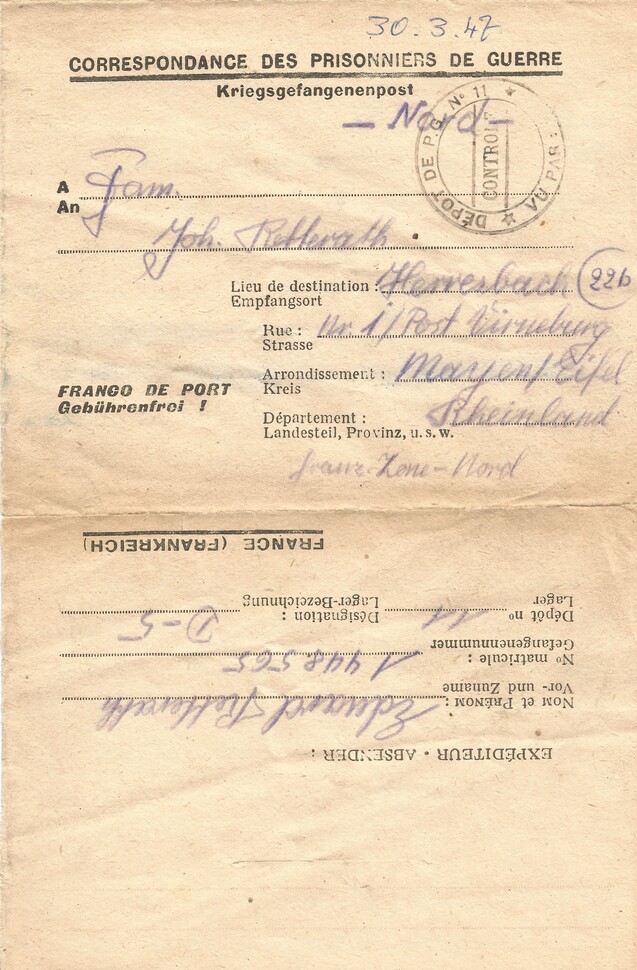 30.3.47
CORRESPONDANCE DES PRISONNIERS DE GUERRE
Kriegsgefangenenpost
— Nord —
DÉPOT DE P.G. N° 11
CONTROLE
A Fam.
An
Joh. Retterath
Lieu de destination : Herresbach 22b
Empfangsort
Rue : Nr 1 / Post Virneburg
Strasse
Arrondissement : Mayen / Eifel
Kreis
FRANCO DE PORT
Gebührenfrei !
Département : Rheinland
Landesteil, Provinz, u.s.w.
franz. Zone - Nord
EXPÉDITEUR · ABSENDER :
NOM et PRÉNOM : Eduard Retterath
Vor- und Zuname
N° matricule : 1448565
Gefangenennummer
Dépôt n° 11 Désignation : D-5
Lager Lager-Bezeichnung
FRANCE (FRANKREICH)